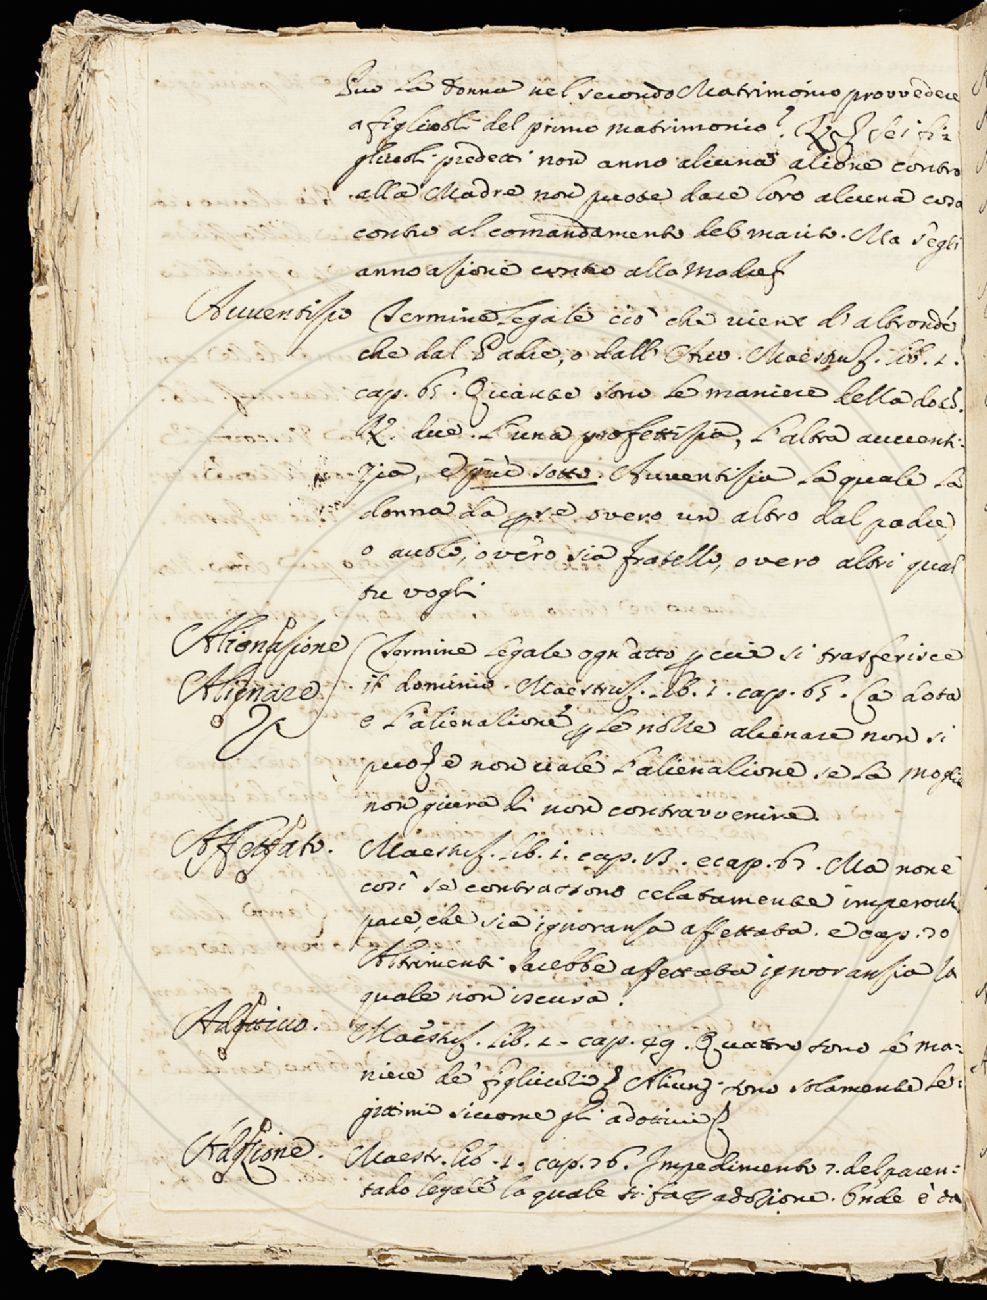 Può la donna nel secondo Matrimonio provvedere
a figliuoli del primo matrimonio? se i fi=
gliuoli predetti non anno alcuna azione contro
alla Madre non puote dare loro alcuna cosa
contro al comandamento del marito. Ma s'egli
anno asione contro alla Madre
Avventisio Termine legale ciò che viene d'altronde
che dal Padre, o dall' Avo. Maestruz. lib. 1.
cap. 65. Quante sono le maniere della dota.
R. due. L'una profettisia, l'altra avventi-
zia, e più sotto. Avventisia la quale la
donna dà p se overo un altro dal padre,
o avolo, overo sia fratello, overo altri qual
tu vogli
Alienasione Termine legale ogn'atto p cui si trasferisce
Alienare il dominio. Maestruz. lib. 1. cap. 65. La dota
e l'alienazione p le nolle alienare non si
può e non vale l'alienazione se la moglie
non giura di non contravvenire.
Affettato. Maestruz. lib. 1. cap. 53. e cap. 67. Ma non è
così se contrassono celatamente imperocch
pare, che sia ignoransa affettata. e cap. 70
Altrimenti sarebbe affettata ignoransia la
quale non iscusa.
Adottivo. Maestruz. lib. 1. cap. 49. Quattro sono le ma=
niere de' figliuoli Alcuni sono solamente le=
gittimi siccome gli adottivi
Adozione. Maestr. lib. 1. cap. 76. Impedimento 7. del paren=
tado legale lo quale si fa p adozione. Onde è da